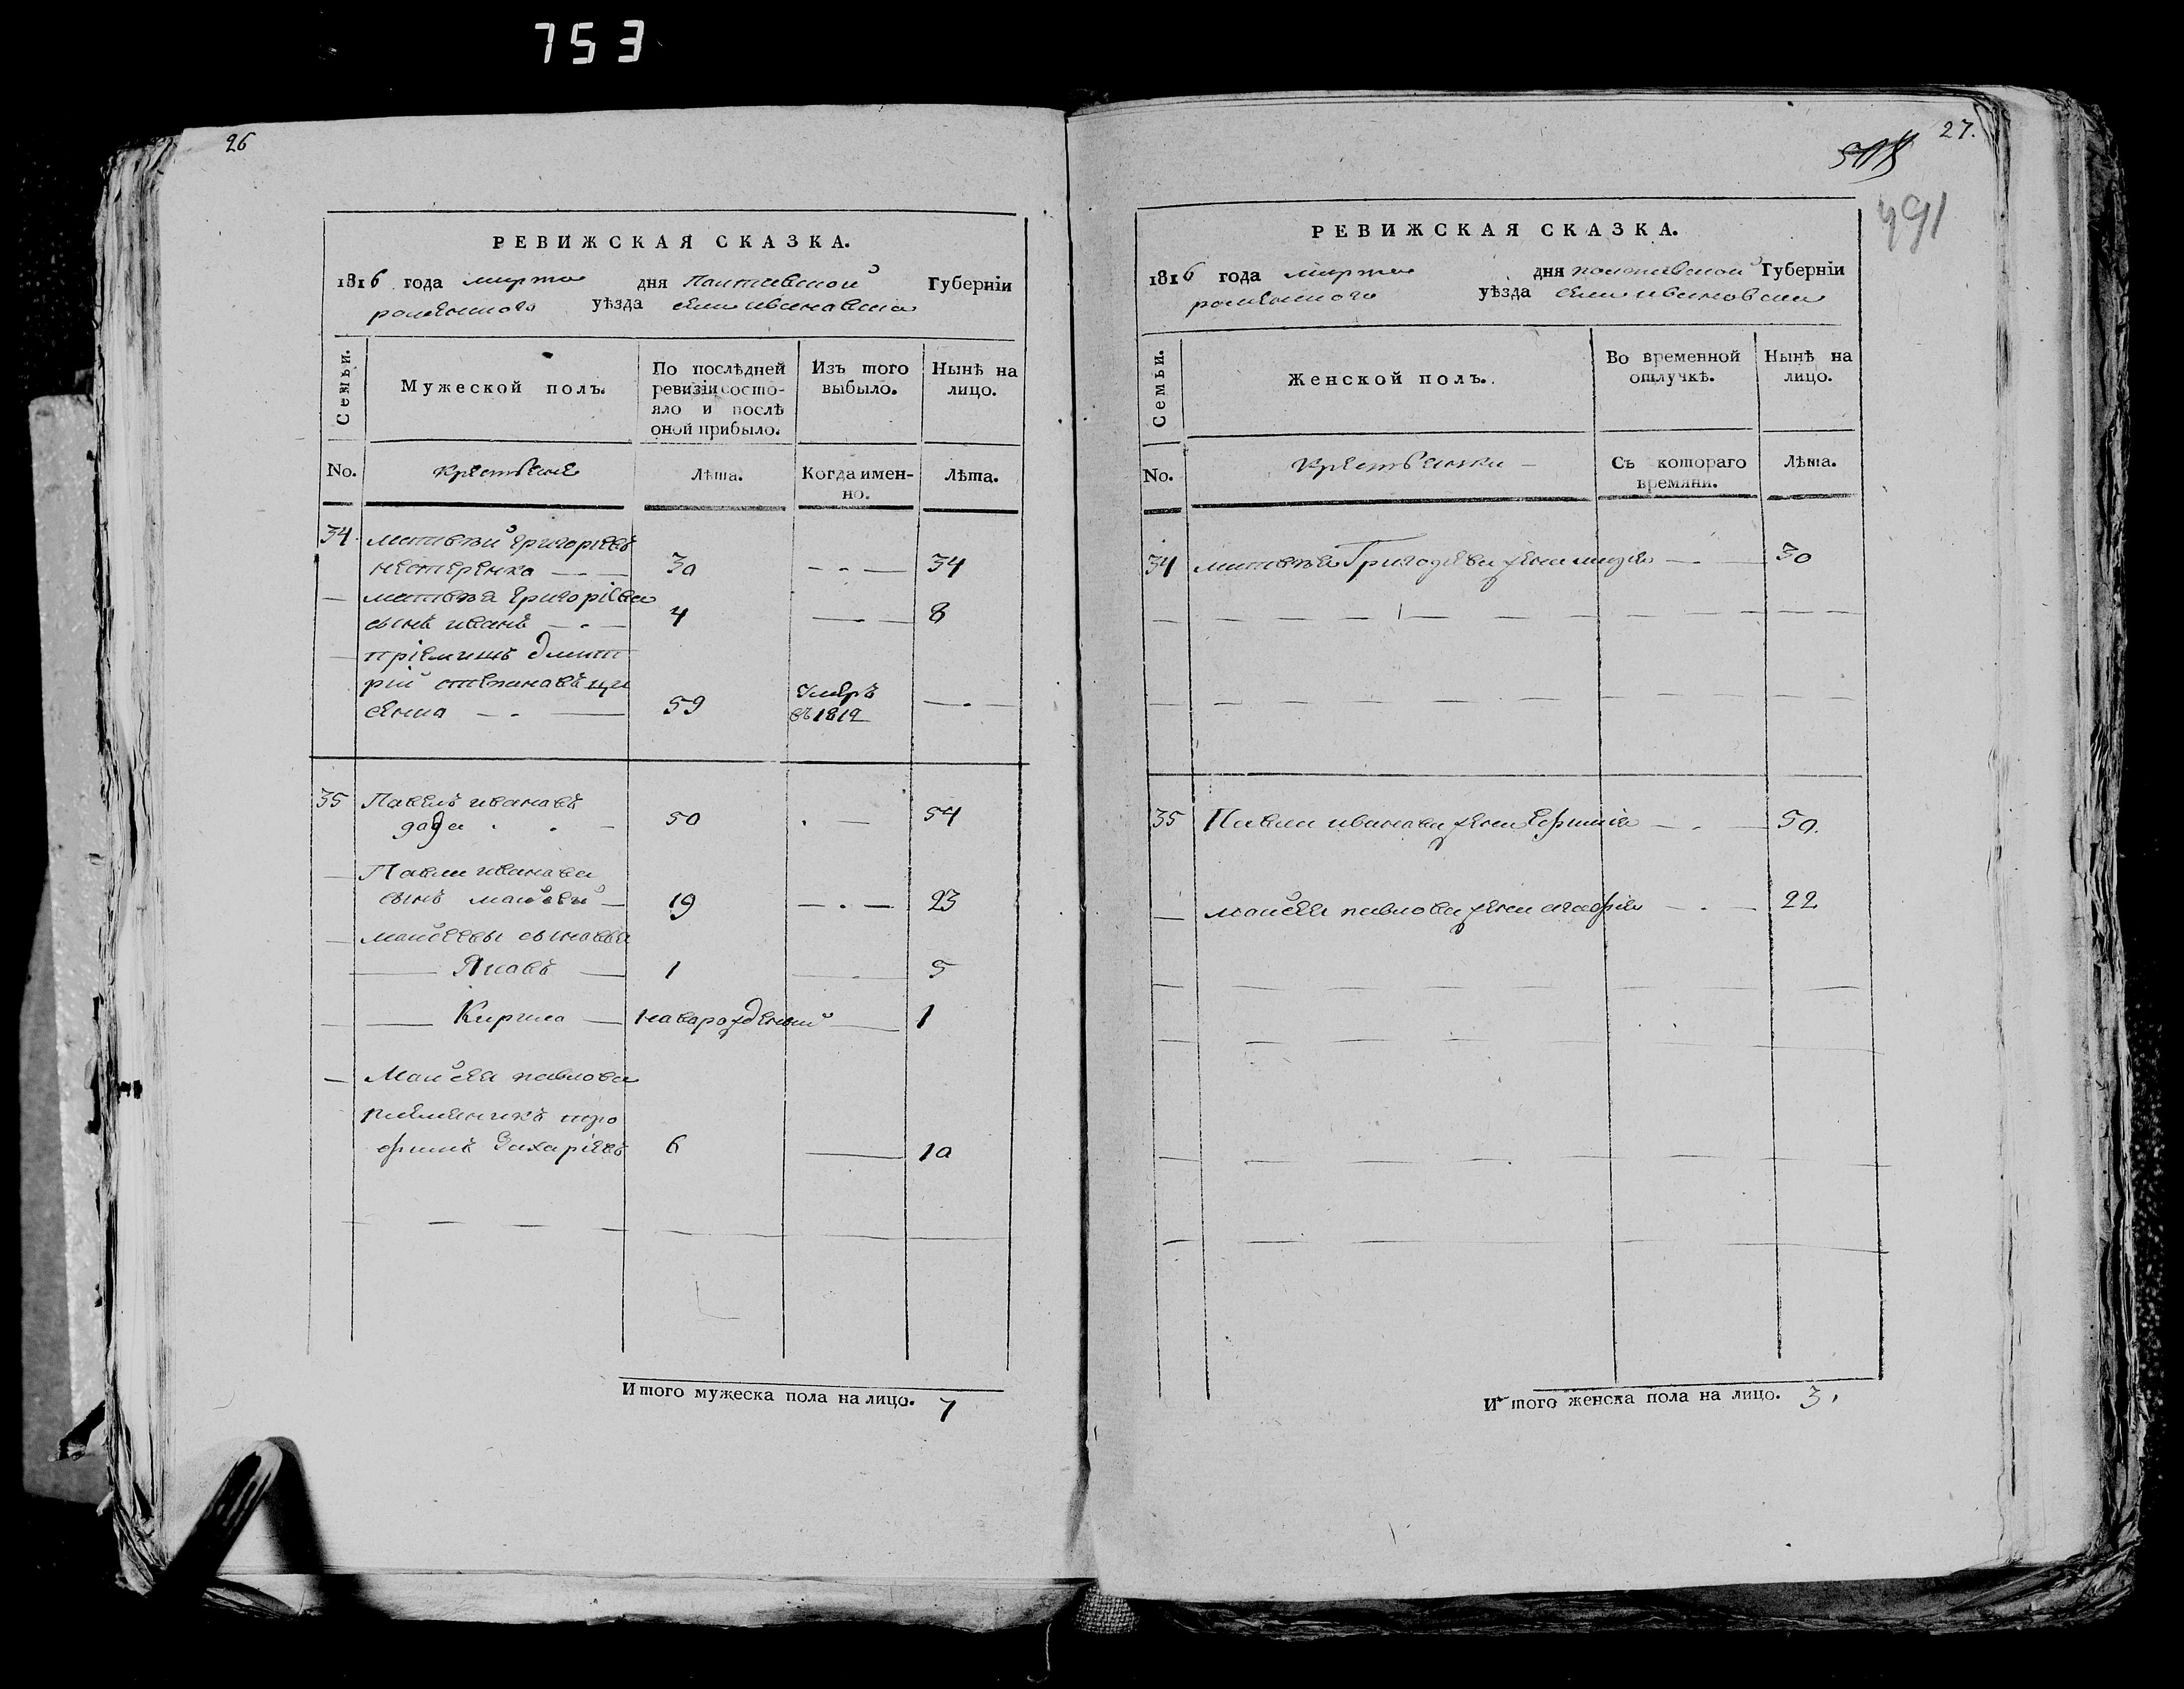 753
26
РЕВИЖСКАЯ СКАЗКА.
1816 года марта дня Полтавской Губерніи
роменского уѣзда села ивановки
Семьи.
Мужеской полъ.
По послѣдней ревизіи состо-
яло и послѣ
оной прибыло.
Изъ того
выбыло.
Нынѣ на
лицо.
No.
крестьяне
Лѣта.
Когда имен-
но.
Лѣта.
34 матвѣй григоріевъ
нестеренко 30 34
матвѣя григоріева
сынъ иванъ 4 8
пріемишъ дмит
рій степановъ
59 умеръ
въ 1812
35 Павелъ ивановъ
50 54
Павла иванова
сынъ мойсей 19 23
мойсеевы сыновья
Яковъ 1 5
Кирило новорожденый 1
Мойсея павлова
племяникъ тро
фимъ Захаріевъ 6 10
Итого мужеска пола на лицо. 7
27.
491
РЕВИЖСКАЯ СКАЗКА.
1816 года марта дня полтавской Губерніи
роменского уѣзда села ивановки
Семьи.
Женской полъ.
Во временной
отлучкѣ.
Нынѣ на
лицо.
No.
крестьянки
Съ котораго
времяни.
Лѣта.
34 матвѣя Григорїева жена 30
35 Павла иванова жена Ефимія 50.
мойсея павлова жена агафія 22
Итого женска пола на лицо. 3.